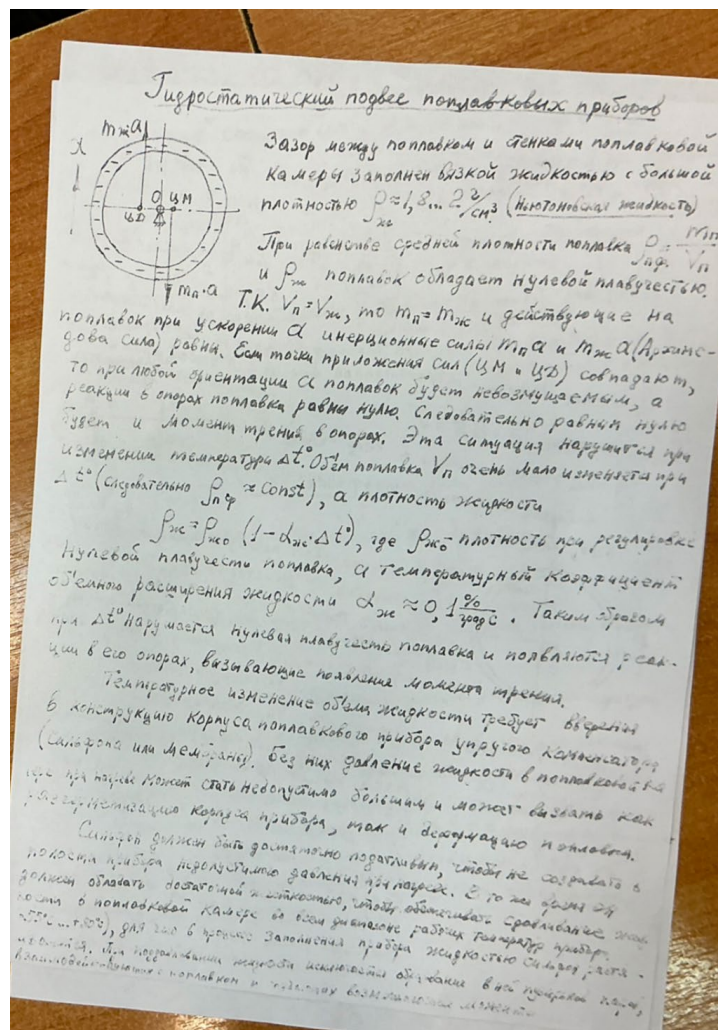 Гидростатический подвес поплавковых приборов
mжa
x
О
ЦД
ЦМ
mп·a
Зазор между поплавком и стенками поплавковой
камеры заполнен вязкой жидкостью с большой
плотностью ρж ≈ 1,8...2 г/см³ (Ньютоновская жидкость)
При равенстве средней плотности поплавка ρп.ср. = mп/Vп
и ρж поплавок обладает нулевой плавучестью.
Т.К. Vп = Vж, то mп = mж и действующие на
поплавок при ускорении a инерционные силы mпa и mжa (Архиме-
дова сила) равны. Если точки приложения сил (ЦМ и ЦД) совпадают,
то при любой ориентации a поплавок будет невозмущаемым, а
реакции в опорах поплавка равны нулю. Следовательно равным нулю
будет и момент трения в опорах. Эта ситуация нарушится при
изменении температуры Δt°. Объём поплавка Vп очень мало изменяется при
Δt° (следовательно ρп ср ≈ const), а плотность жидкости
ρж = ρжо (1 - αж·Δt°), где ρжо - плотность при регулировке
нулевой плавучести поплавка, а температурный коэффициент
объёмного расширения жидкости αж ≈ 0,1 %/град С. Таким образом
при Δt° нарушается нулевая плавучесть поплавка и появляются реак-
ции в его опорах, вызывающие появления момента трения.
Температурное изменение объёма жидкости требует введения
в конструкцию корпуса поплавкового прибора упругого компенсатора
(сильфона или мембраны). Без них давление жидкости в поплавковой ка
мере при нагреве может стать недопустимо большим и может вызвать как
разгерметизацию корпуса прибора, так и деформацию поплавка.
Сильфон должен быть достаточно податливым, чтобы не создавать в
полости прибора недопустимого давления при нагреве. В то же время он
должен обладать достаточной жёсткостью, чтобы обеспечивать сдавливание жид
кости в поплавковой камере во всём диапазоне рабочих температур прибора
в процессе заполнения прибора жидкостью сильфон растя-
жидкости в ней
поплавком и